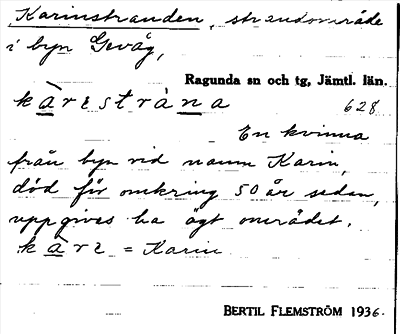 Karinstranden, strandområde
i byn Gevåg,
Ragunda sn och tg, Jämtl. län.
kàrestràna 628
En kvinna
från byn vid namn Karin,
död för omkring 50 år sedan,
uppgives ha ägt området.
kàre = Karin
BERTIL FLEMSTRÖM 1936.